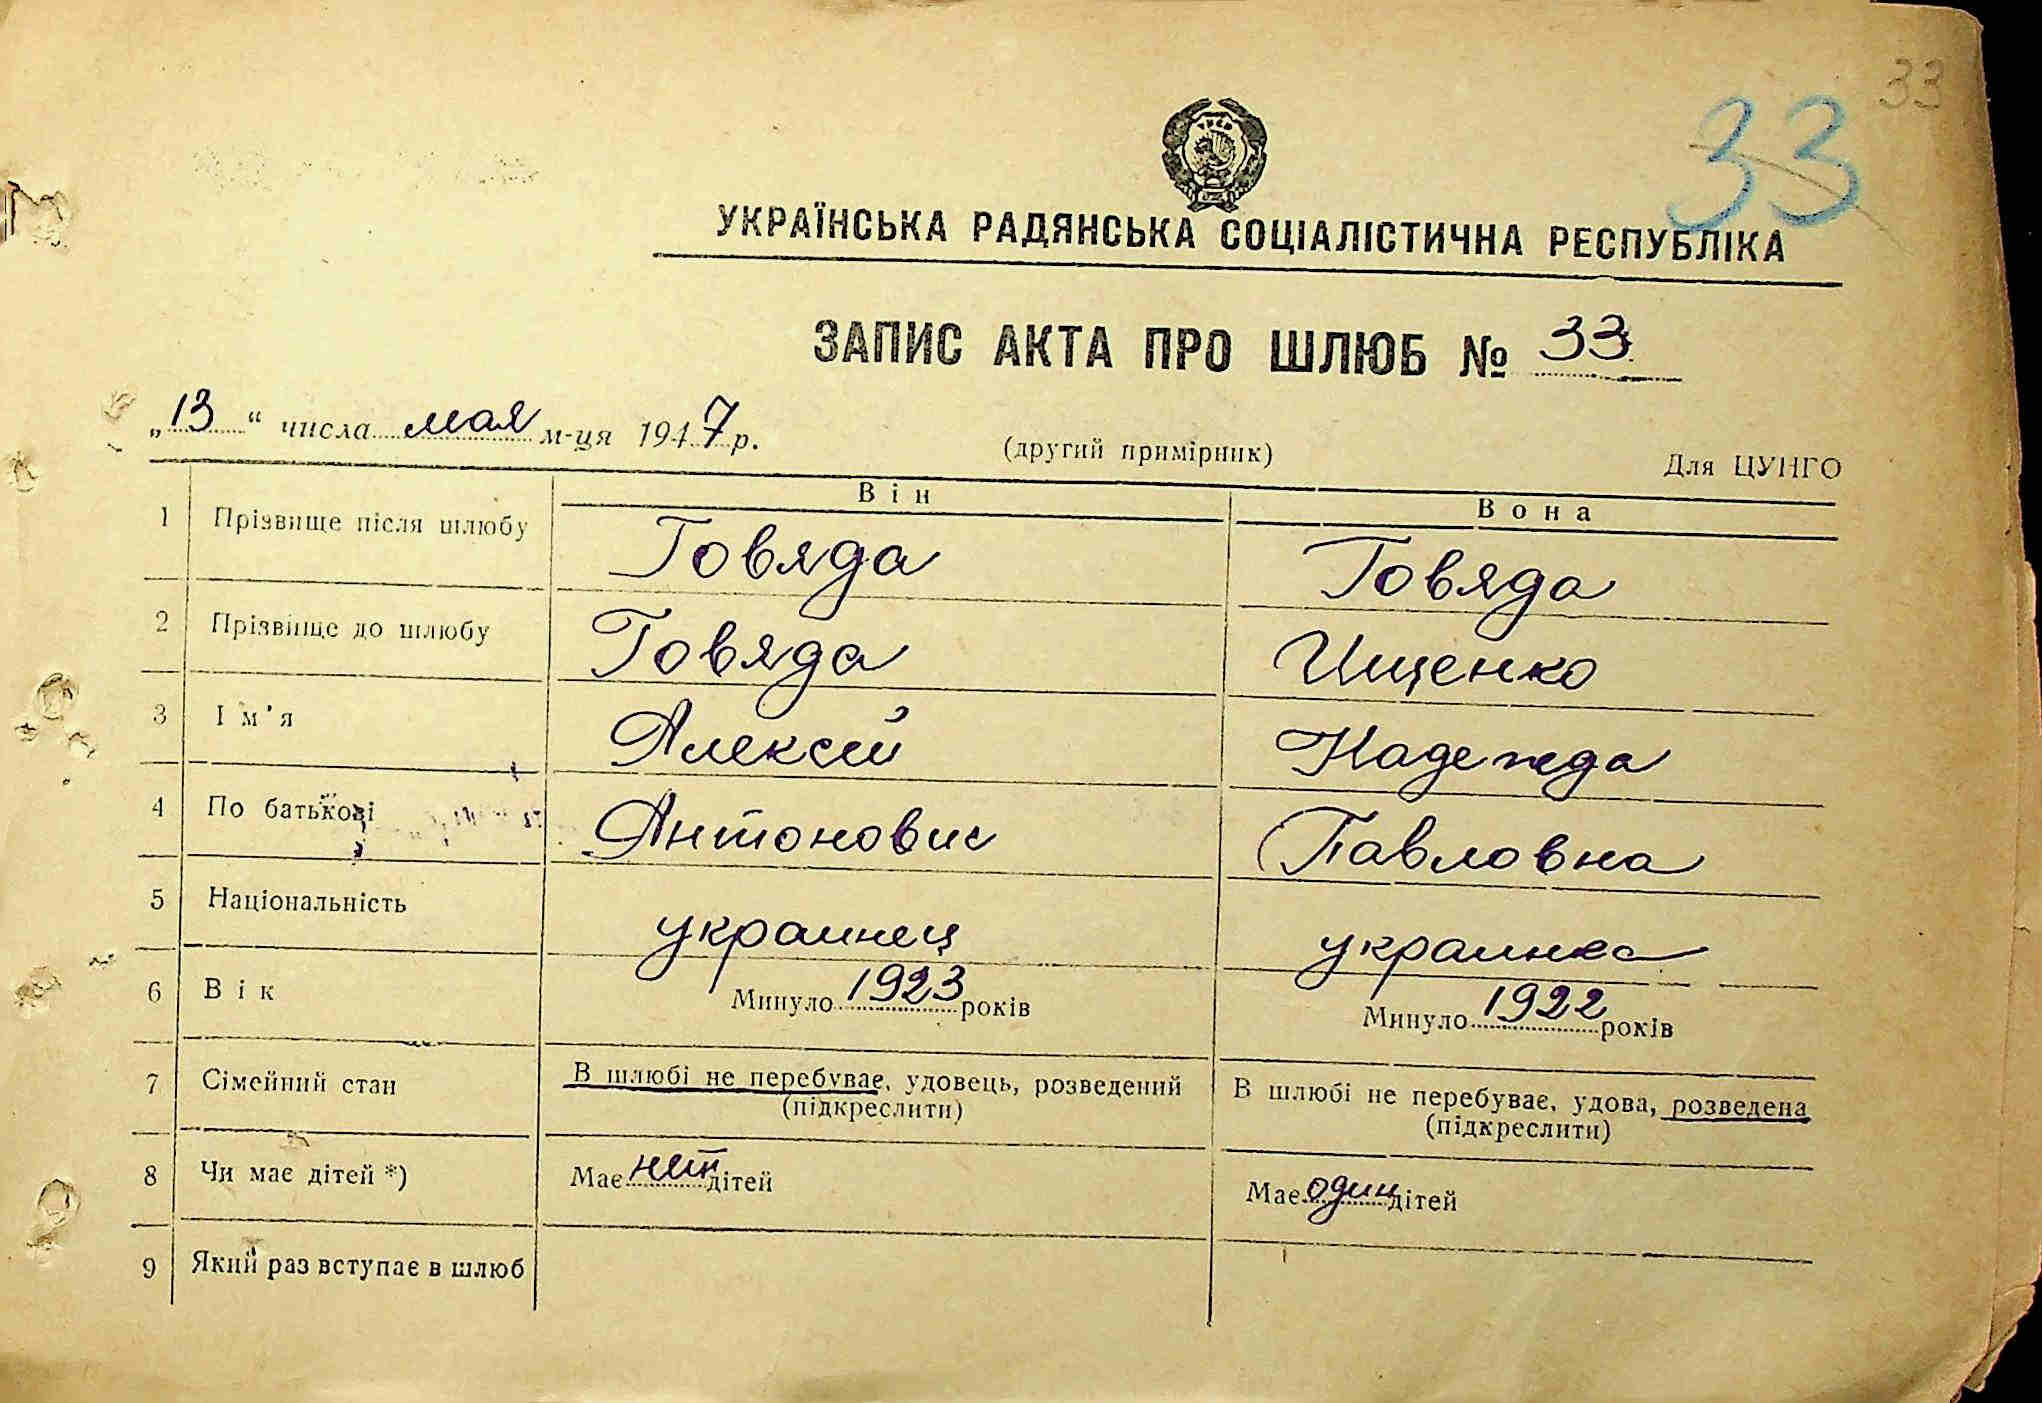 33
33
УКРАЇНСЬКА РАДЯНСЬКА СОЦІАЛІСТИЧНА РЕСПУБЛІКА
ЗАПИС АКТА ПРО ШЛЮБ № 33
„13“ числа мая м-ця 1947 р.
(другий примірник)
Для ЦУНГО
Він Вона
1 Прізвище після шлюбу Говяда Говяда
2 Прізвище до шлюбу Говяда Ищенко
3 Ім'я Алексей Надежда
4 По батькові Антонович Павловна
5 Національність украинец украинка
6 Вік Минуло 1923 років Минуло 1922 років
7 Сімейний стан В шлюбі не перебуває, удовець, розведений В шлюбі не перебуває, удова, розведена
(підкреслити) (підкреслити)
8 Чи має дітей *) Має нет дітей Має один дітей
9 Який раз вступає в шлюб